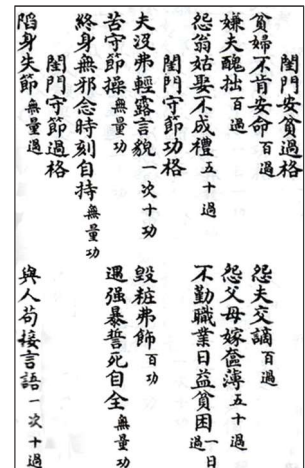 閨門安貧過格
貧婦不肯安命百過
怨夫交謫百過
嫌夫醜拙百過
怨父母嫁奩薄五十過
怨翁姑娶不成禮五十過
不勤職業日益貧困一日一過
閨門守節功格
夫沒弗輕露言貌一次十功
毀粧弗飾百功
苦守節操無量功
遇强暴誓死自全無量功
終身無邪念時刻自持無量功
閨門守節過格
陷身失節無量過
與人苟接言語一次十過